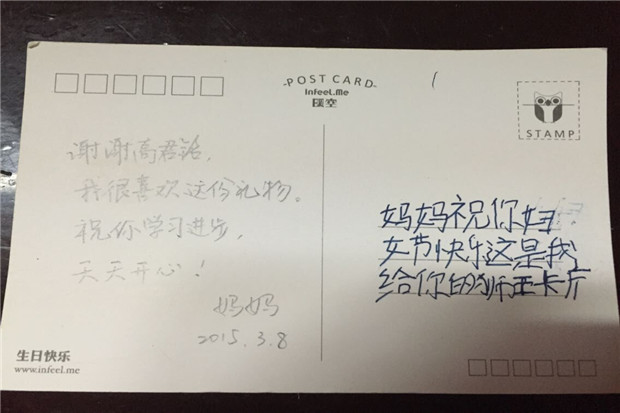 POST CARD
Infeel.Me
STAMP
谢谢高君
我很喜欢这份礼物。
祝你学习进步，
天天开心！
妈妈
2015.3.8
妈妈祝你妇
女节快乐这是我
给你的狮王卡片
生日快乐
www.infeel.me